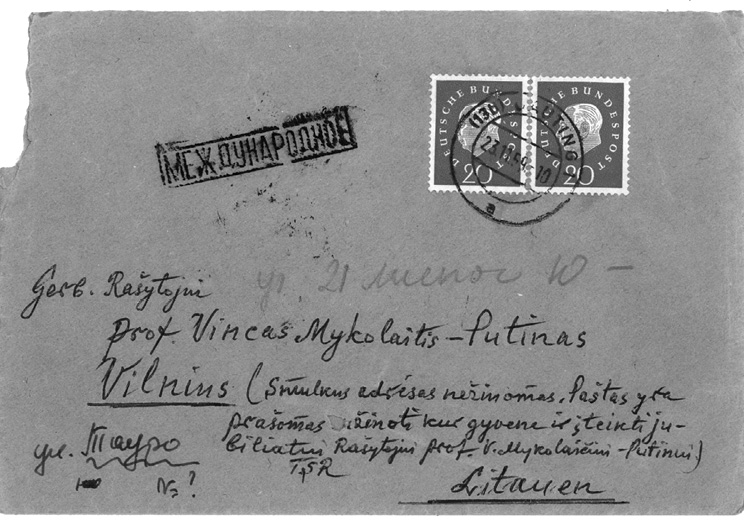 МЕЖДУНАРОДНОЕ
DEUTSCHE BUNDESPOST
20
DEUTSCHE BUNDESPOST
20
(13b)
a
Gerb. Rašytojui
ул 21
prof. Vincas Mykolaitis-Putinas
Vilnius (Smulkus adresas nežinomas. Paštas yra
prašomas sužinoti kur gyvena ir įteikti ju-
biliatui Rašytojui prof. V. Mykolaičiui-Putinui)
ул. Тауро
№?
Litauen